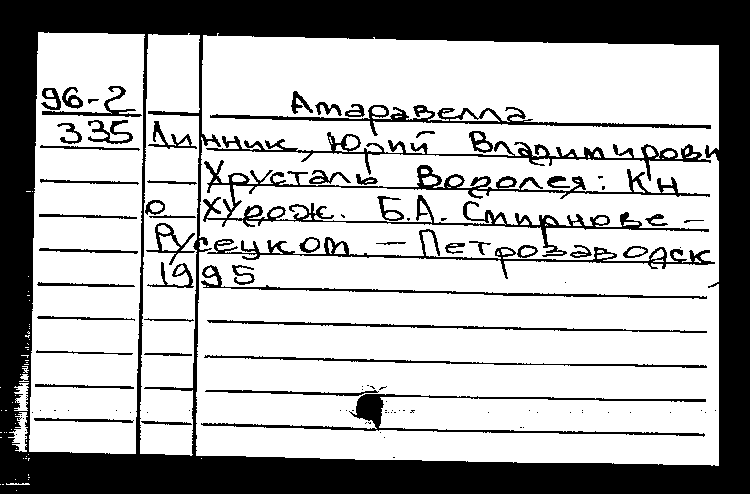 96-2 Амаравелла
335 Линник, Юрий Владимирови
Хрусталь Водолея: Кн
о худож. Б.А. Смирнове-
Русецком. - Петрозаводск,
1995